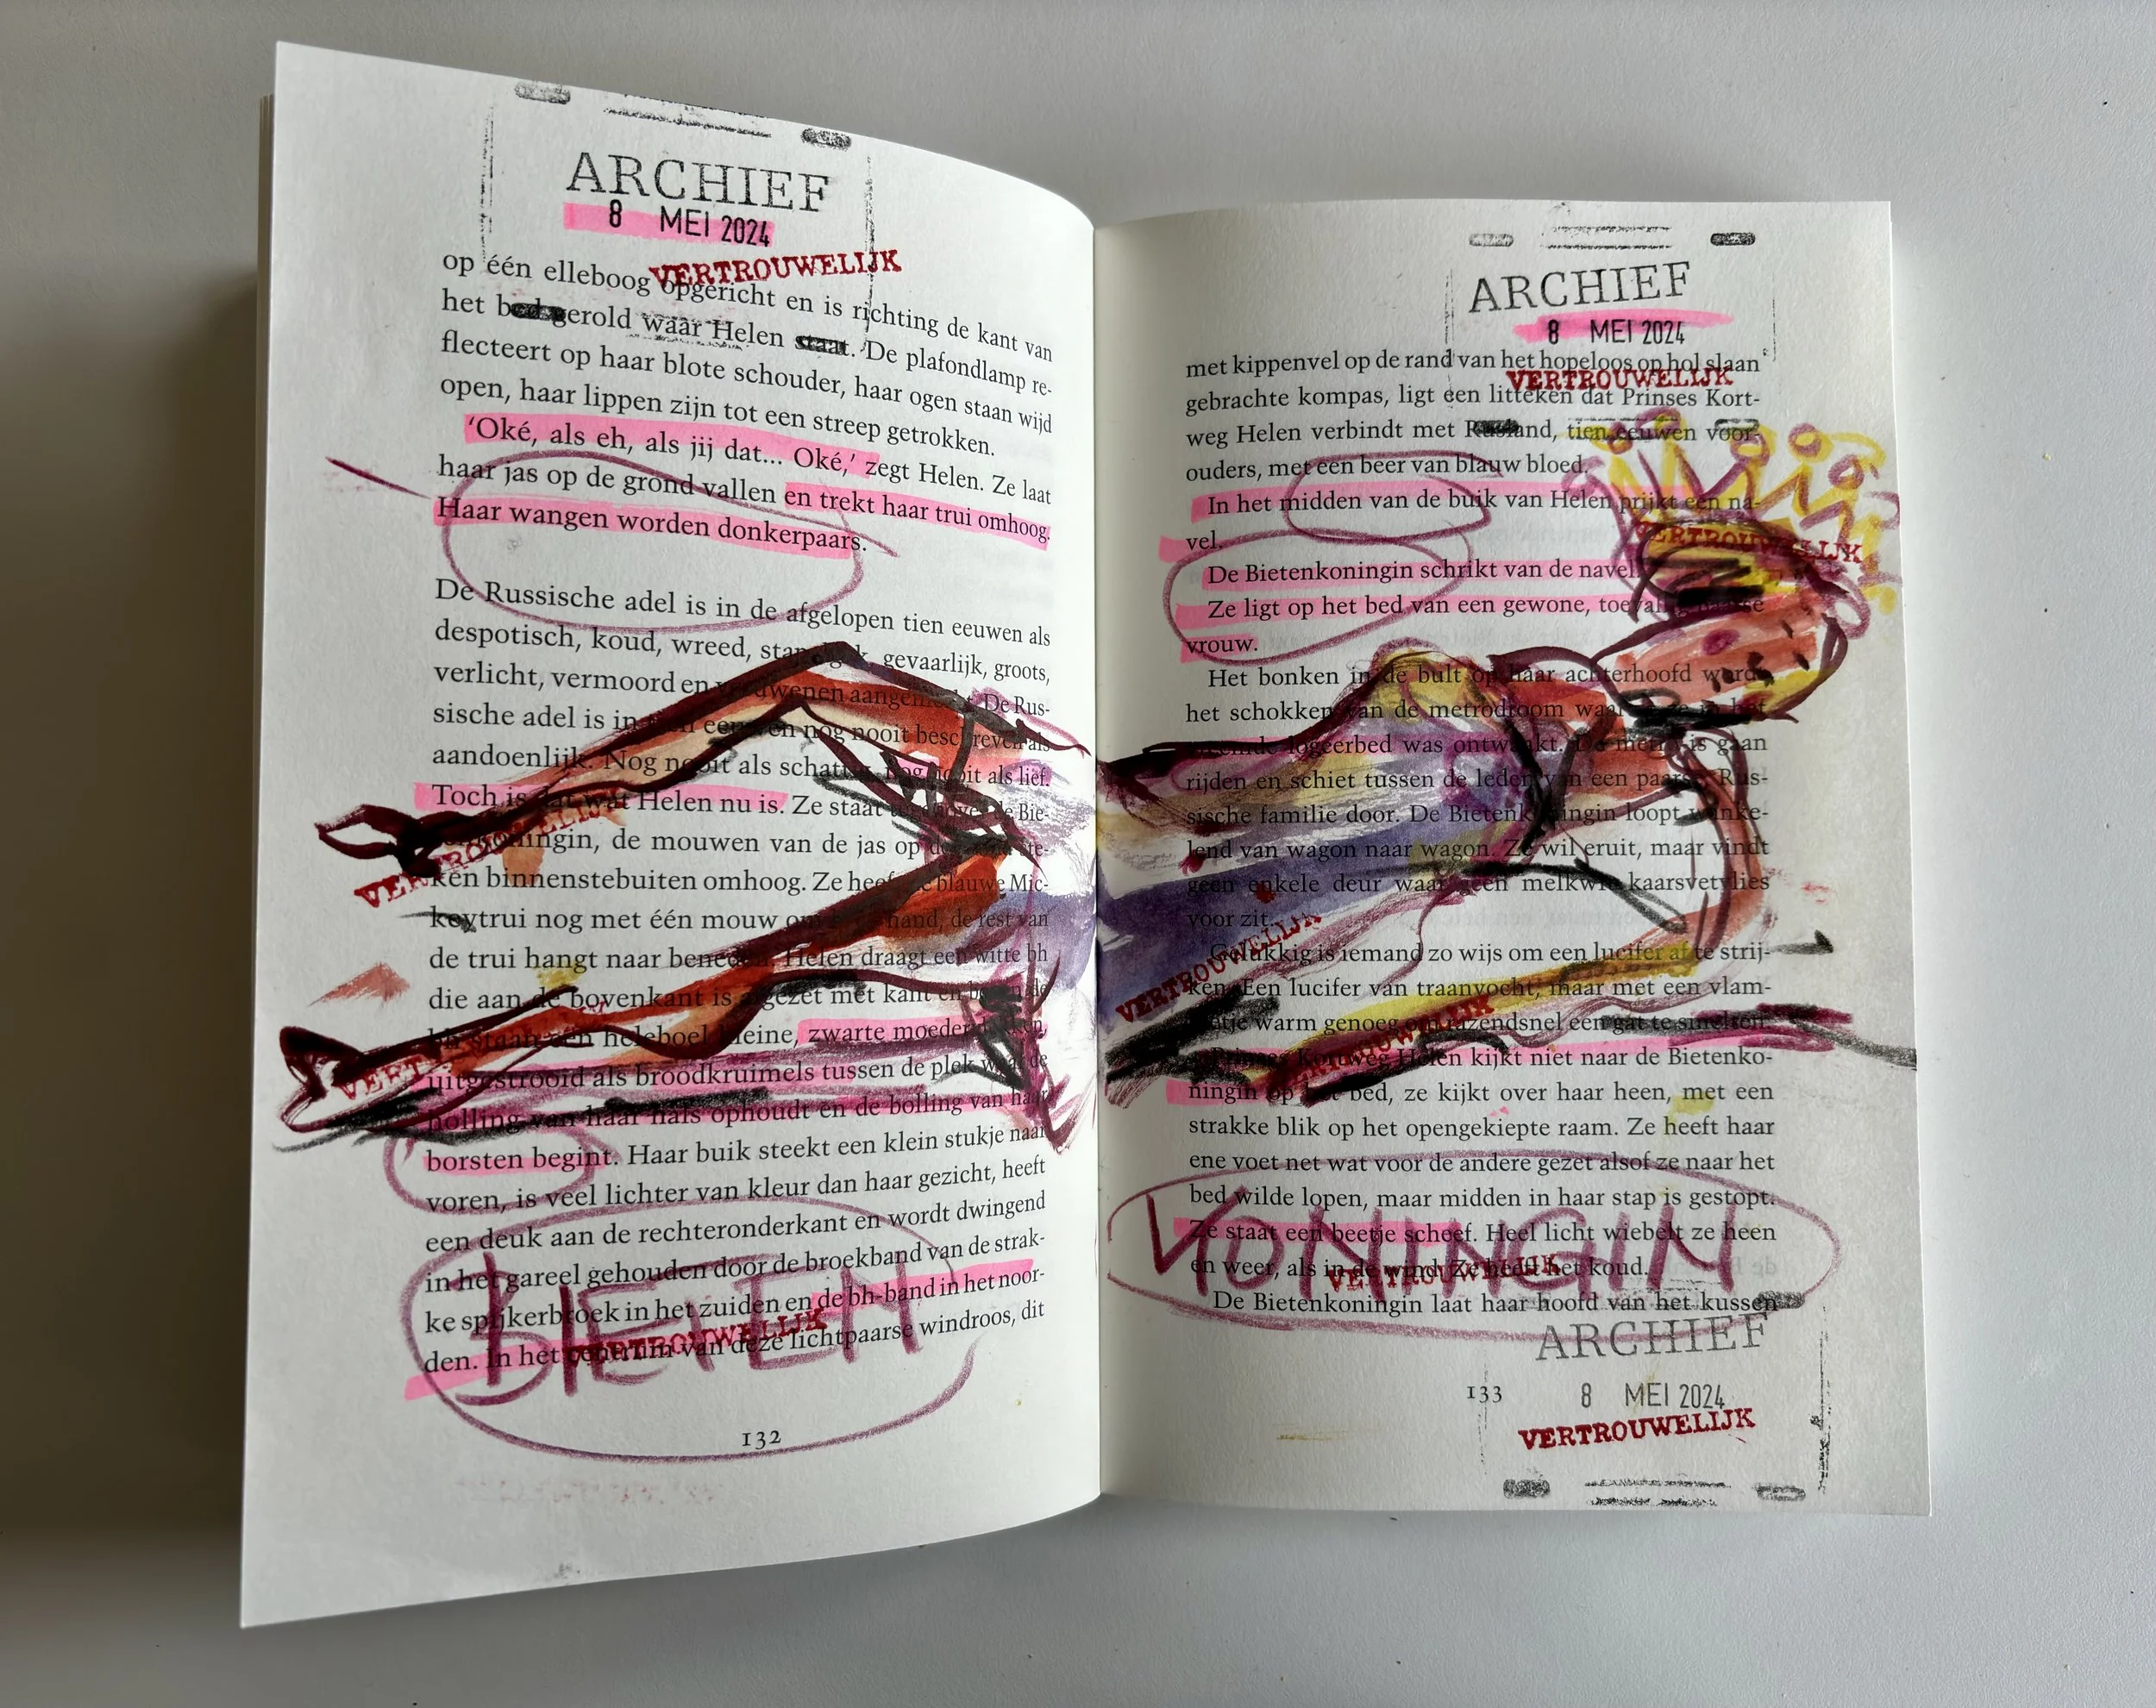 ARCHIEF
8 MEI 2024
VERTROUWELIJK
op één elleboog opgericht en is richting de kant van
het bed gerold waar Helen staat. De plafondlamp re-
flecteert op haar blote schouder, haar ogen staan wijd
open, haar lippen zijn tot een streep getrokken.
‘Oké, als eh, als jij dat... Oké,’ zegt Helen. Ze laat
haar jas op de grond vallen en trekt haar trui omhoog.
Haar wangen worden donkerpaars.
De Russische adel is in de afgelopen tien eeuwen als
despotisch, koud, wreed, gevaarlijk, groots,
verlicht, vermoord en verdwenen aangemerkt. De Rus-
sische adel is in tien eeuwen nog nooit beschreven als
aandoenlijk. Nog nooit als schattig, nog nooit als lief.
Toch is dat wat Helen nu is. Ze staat de Bie-
tenkoningin, de mouwen van de jas op
ken binnenstebuiten omhoog. Ze heeft de blauwe Mic-
keytrui nog met één mouw om hand, de rest van
de trui hangt naar beneden. Helen draagt een witte bh
die aan de bovenkant is afgezet met kant en boven de
bh staan een heleboel kleine, zwarte moedervlekken,
uitgestrooid als broodkruimels tussen de plek waar de
bolling van haar hals ophoudt en de bolling van haar
borsten begint. Haar buik steekt een klein stukje naar
voren, is veel lichter van kleur dan haar gezicht, heeft
een deuk aan de rechteronderkant en wordt dwingend
in het gareel gehouden door de broekband van de strak-
ke spijkerbroek in het zuiden en de bh-band in het noor-
den. In het centrum van deze lichtpaarse windroos, dit
VERTROUWELIJK
VERTROUWELIJK
BIETEN
132
ARCHIEF
8 MEI 2024
VERTROUWELIJK
met kippenvel op de rand van het hopeloos op hol slaan
gebrachte kompas, ligt een litteken dat Prinses Kort-
weg Helen verbindt met Rusland, tien eeuwen voor-
ouders, met een beer van blauw bloed.
In het midden van de buik van Helen prijkt een na-
vel.
VERTROUWELIJK
De Bietenkoningin schrikt van de navel.
Ze ligt op het bed van een gewone, toevallig paarse
vrouw.
Het bonken in de bult op haar achterhoofd werd
het schokken van de metrodroom waar ze in het
vreemde logeerbed was ontwaakt. De metro is gaan
rijden en schiet tussen de leden van een paarse Rus-
sische familie door. De Bietenkoningin loopt winke-
lend van wagon naar wagon. Ze wil eruit, maar vindt
geen enkele deur waar geen melkwit kaarsvetvlies
voor zit.
Gelukkig is iemand zo wijs om een lucifer af te strij-
ken. Een lucifer van traanvocht, maar met een vlam-
metje warm genoeg om razendsnel een gat te smelten.
Prinses Kortweg Helen kijkt niet naar de Bietenko-
ningin op het bed, ze kijkt over haar heen, met een
strakke blik op het opengekiepte raam. Ze heeft haar
ene voet net wat voor de andere gezet alsof ze naar het
bed wilde lopen, maar midden in haar stap is gestopt.
Ze staat een beetje scheef. Heel licht wiebelt ze heen
en weer, als in de wind. Ze heeft het koud.
De Bietenkoningin laat haar hoofd van het kussen
VERTROUWELIJK
VERTROUWELIJK
VERTROUWELIJK
KONINGIN
ARCHIEF
133
8 MEI 2024
VERTROUWELIJK